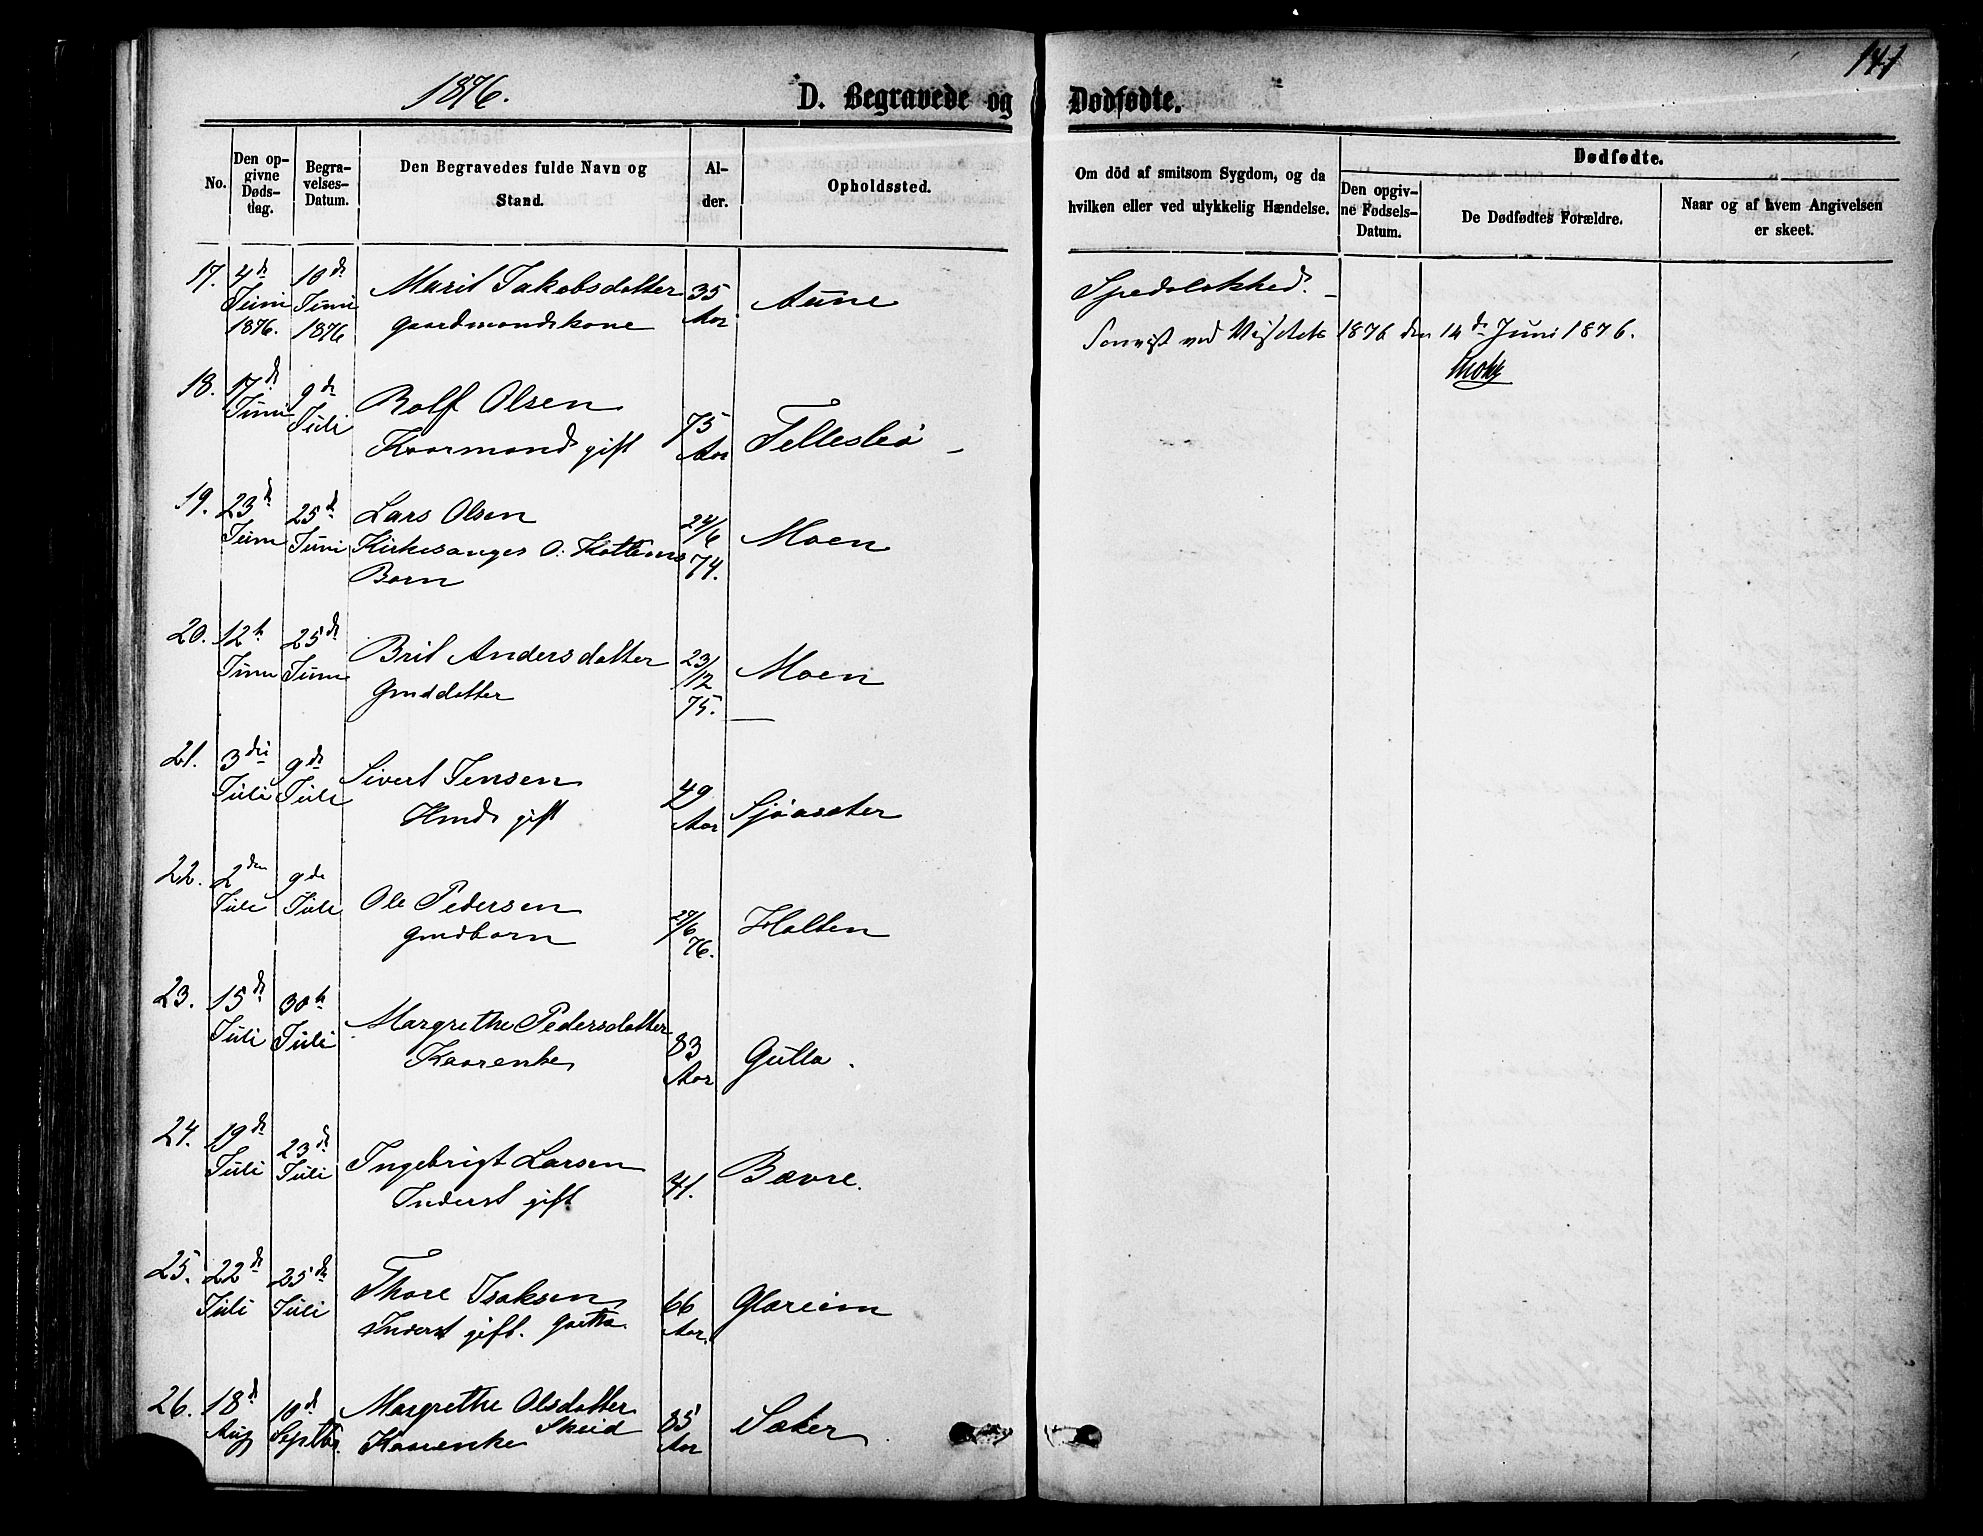 141
1876.
D. Begravede og Dødfødte.
No.
Den opgivne Døds-dag.
Begra-velses-Datum.
Den Begravedes fulde Navn og Stand.
Al-der.
Opholdssted.
Om död af smitsom Sygdom, og da hvilken eller ved ulykkelig Hændelse.
Dødfødte.
Den opgiv-ne Fødsels-Datum.
De Dødfødtes Forældre.
Naar og af hvem Angivelsen er skeet.
17. 4de Juni 1876. 10de Juni 1876 Marit Jakobsdatter 35 Aar Aune Spedalskhed. –
gaardmandskone
ved 1876 den 14de Juni 1876.
18. 17de Juni 9de Juli Rolf Olsen 75 Aar Telleslø –
Kaarmand gift
19. 23de Juni 25de Juni Lars Olsen 24/6 74. Moen
Kirkesanger O. Kottums
Barn
20. 12te Juni 25de Juni Brit Andersdatter 23/12 75. Moen
gmddatter
21. 3die Juli 9de Juli Sivert Jensen 49 Aar Sjøaseter
Hmd gift
22. 2den Juli 9de Juli Ole Pedersen 29/6 76. Holten
gmdbarn
23. 15de Juli 30te Juli Margrethe Pedersdatter 83 Aar Gulla.
Kaarenke
24. 19de Juli 23de Juli Ingebrigt Larsen 41. Bævre.
Inderst gift
25. 22de Juli 25de Juli Thore Isaksen 66 Aar. Glæreim
Inderst gift.
26. 18de Aug 10de Septbr. Margrethe Olsdatter 85 Aar Sæter
Kaarenke Skeid